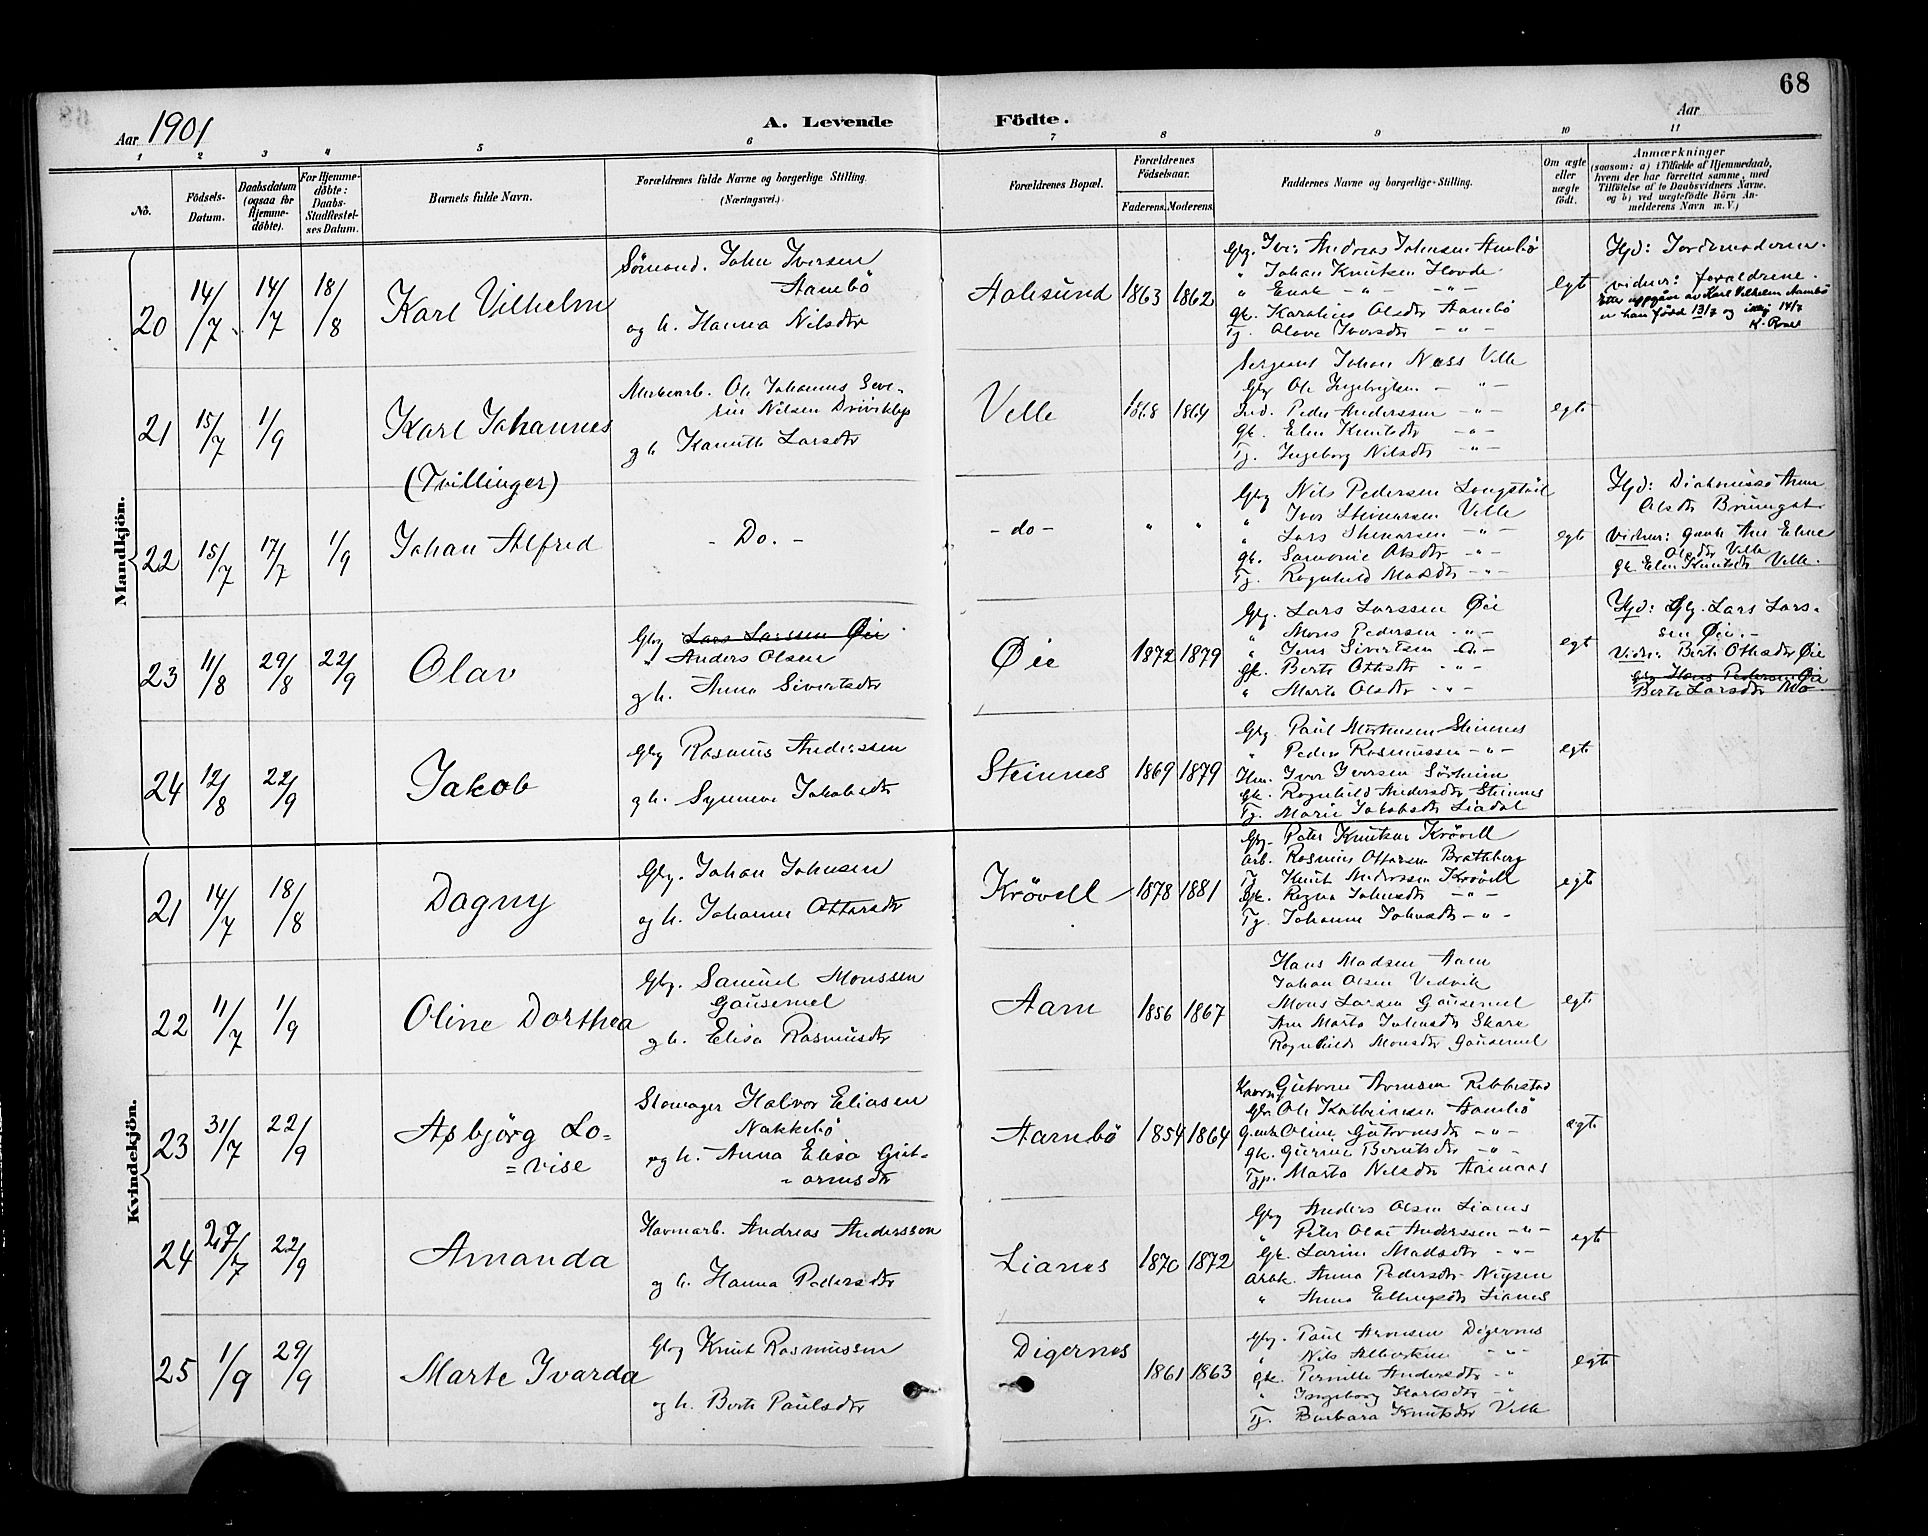 68
Aar 1901
A. Levende Födte.
Aar
1 2 3 4 5 6 7 8 9 10 11
No.
Födsels-
Datum.
Daabsdatum
(ogsaa för
Hjemme-
döbte).
For Hjemme-
döbte:
Daabs-
Stadfæstel-
ses Datum.
Barnets fulde Navn.
Forældrenes fulde Navne og borgerlige Stilling.
(Næringsvei.)
Forældrenes Bopæl.
Forældrenes
Födselsaar.
Faderens. Moderens.
Faddernes Navne og borgerlige Stilling.
Om ægte
eller
uægte
födt.
Anmærkninger
(saasom: a) i Tilfælde af Hjemmedaab,
hvem der har forrettet samme, med
Tilföielse af to Daabsvidners Navne,
og b) ved uægtefödte Börn An-
melderens Navn m. V.)
Mandkjön.
20 14/7 14/7 18/8 Karl Vilhelm
Sømand. John Iversen
Aambø
og h. Hanna Nilsdtr
Aalesund 1863 1862
Gbg. Iver Andreas Johnsen Aambø
" Johan Knutsen Hovde
" Enok - " - - " -
gk. Karoline Olsdtr Aambø
Tj. Olave Iversdtr - " -
egt
Hjd: Jordemoderen.
vidner: forældrene.
Etter oppgave av Karl Vilhelm Aambø
er han född 13/7 og ikkj 14/7
21 15/7 1/9 Karl Johannes
(Tvillinger)
Ole Johannes Seve-
rin Nilsen
g h Larsdtr
Velle 1868 1864
Sergeant Johan Næss Velle
Gbg Ole Ingebrigtsen - " -
Ind. Peder Anderssen - " -
gk. Elen Knutsdtr - " -
Tj. Ingeborg Nilsdtr - " -
egt
22 15/7 17/7 1/9 Johan Alfred
- Do. -
- do - " "
Gbg Nils Pedersen
" Iver Steinarsen Velle
" Lars Steinarsen - " -
gk. Olsdtr - " -
Tj. Ragnhild Madsdtr - " -
egt
Hjd: Diakonisse Anne
Olsdtr
Vidner: Ane Eline
Olsdtr Velle
gk. Elen Knutsdtr Velle.
23 11/8 29/8 22/9 Olav
Gbg Lars Larssen Øie
Anders Olsen
g h. Anna Sivertsdtr
Øie 1872 1879
Gbg. Lars Larssen Øie
" Mons Pedersen - " -
" Jens Sivertsen - " -
gk. Berte Ottesdtr - " -
" Marte Olsdtr - " -
egt
Hjd: Gbg. Lars Lars-
sen Øie. -
Vidner: Berte Ottesdtr Øie
Gbg Hans Pedersen Øie
Berte Larsdtr Mo
24 12/8 22/9 Jakob
Gbg Rasmus Anderssen
g h. Synneve Jakobsdtr
Steinnes 1869 1879
Gbg. Paul Martinusen Steinnes
" Peder Rasmussen - " -
Hm. Iver Iversen Sørheim
Gk. Ragnhild Andersdtr Steinnes
Tj. Marie Jakobsdtr Liadal
egt
Kvindekjön.
21 14/7 18/8 Dagny
Gbg. Johan Johnsen
og h. Johanne Ottarsdtr
Krøvell 1878 1881
Gbg. Peter Knutsen Krøvell
Arb. Rasmus Ottarsen Brattberg
Tj. Knut Anderssen Krøvell
Gk. Johnsdtr - " -
Tj. Johanne Johnsdtr - " -
egt
22 11/7 1/9 Oline Dorthea
Gbg. Samuel Monssen
Gausemel
g h. Elisa Rasmusdtr
Aam 1856 1867
Hans Madsen Aam
Johan Olsen Vedvik
Mons Larsen Gausemel
Ane Marta Johnsdtr Skare
Ragnhilde Monsdtr Gausemel
egt
23 31/7 22/9 Asbjörg Lo-
= vise
Skomager Halvor Eliasen
Nakkebø
og h. Anna Elisa Gut-
- ormsdtr
Aambø 1854 1864
Gutorm Ribbestad
Gbr. Ole Aambø
Oline Gutormsdtr - " -
gk. Gurine Berntsdtr - " -
Marta Nilsdtr
ægte
24 29/7 22/9 Amanda
Havnarb. Andreas Anderssen
g h. Hanna Pedersdtr
Lianes 1870 1872
Gbg Anders Olsen Lianes
" Peter Olai Anderssen - " -
Gk. Larine Madsdtr - " -
Anna Pedersdtr
" Anna Ellingsdtr Lianes
egt
25 1/9 29/9 Marte Ivarda
Gbg Knut Rasmussen
og h. Berte Paulsdtr
Digernes 1861 1863
Gbg. Paul Aronsen Digernes
" Nils Albertsen - " -
gk. Pernille Andersdtr - " -
" Ingeborg - " -
Tj. Barbara Knutsdtr Velle
egt